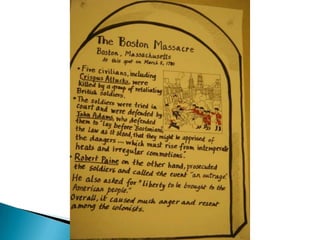 The Boston Massacre
Boston, Massachusetts
At this spot on March 5, 1770
• Five civilians, including
Crispus Attucks, were
killed by a group of retaliating
British soldiers.
• The soldiers were tried in
court and were defended by
John Adams, who defended
them to "lay before Bostonians,
the Law as it stood, that they might be apprized of
the dangers... which must rise from intemperate
heats and irregular commotions".
• Robert Paine on the other hand, prosecuted
the soldiers and called the event "an outrage."
He also asked for "liberty to be brought to the
American people."
Overall, it caused much anger and resent
among the colonists.